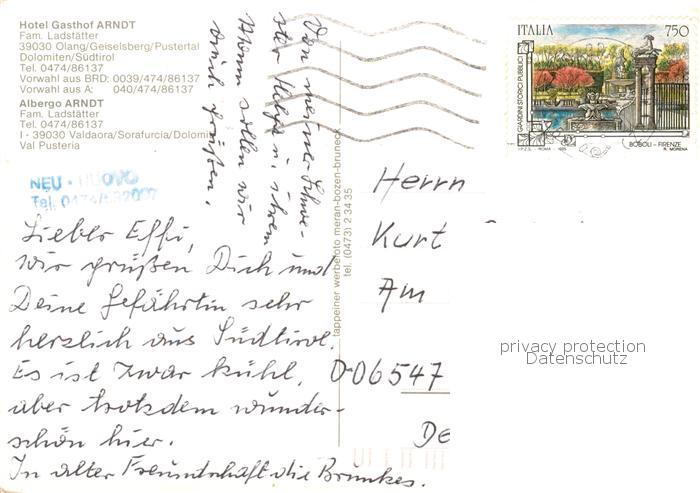 Hotel Gasthof ARNDT
Fam. Ladstätter
39030 Olang/Geiselsberg/Pustertal
Dolomiten/Südtirol
Tel. 0474/86137
Vorwahl aus BRD: 0039/474/86137
Vorwahl aus A: 040/474/86137
Albergo ARNDT
Fam. Ladstätter
Tel. 0474/86137
I - 39030 Valdaora/Sorafurcia/Dolomiti
Val Pusteria
NEU - NUOVO
Tel. 0474/
Lieber Effi,
wir grüßen Dich und
Deine Gefährtin sehr
herzlich aus Südtirol.
Es ist zwar kühl,
aber trotzdem wunder-
schön hier.
In alter Freundschaft die Brunkes.
Von meiner Schwe-
ster Helga u. ihrem
Mann sollen wir
Euch grüßen.
lappeiner werbefoto meran-bozen-bruneck
tel. (0473) 2 34 35
ITALIA 750
GIARDINI STORICI PUBBLICI
BOBOLI - FIRENZE
I.P.Z.S. - ROMA
R. MORENA
Herrn
Kurt
Am
D-06547
De
privacy protection
Datenschutz